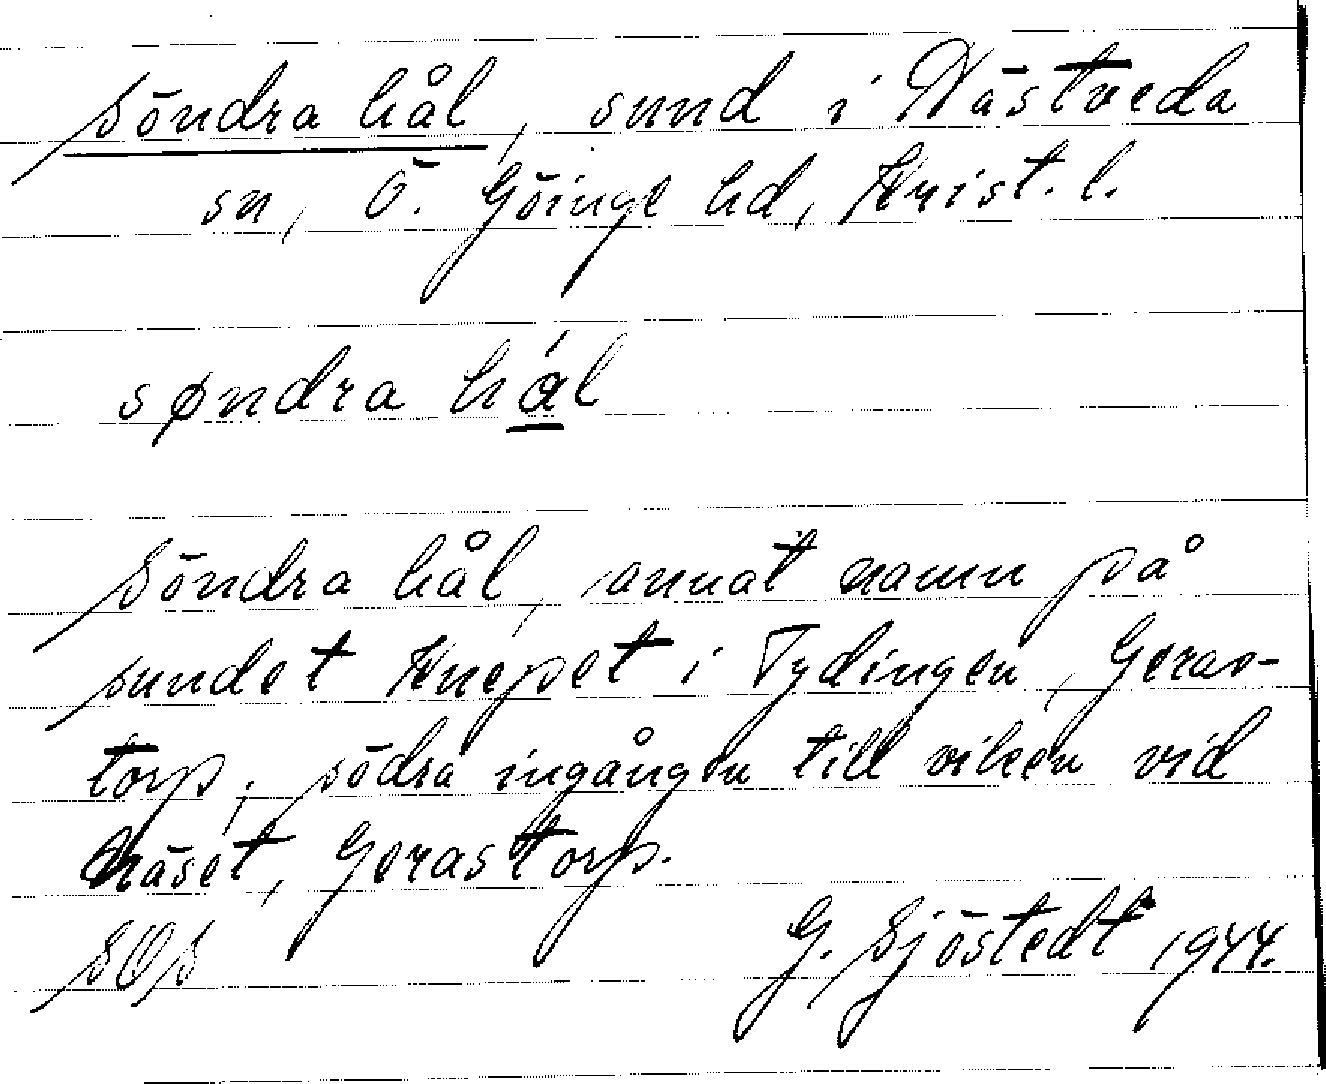 Söndra hål, sund i Nästveda
sn, Ö. Göinge hd, Krist. l.
søndra hál
Söndra hål, annat namn på
sundet Knepet i Tydingen, Geras-
torp, södra ingången till viken vid
Näset, Gerastorp.
SOS G. Sjöstedt 1944.